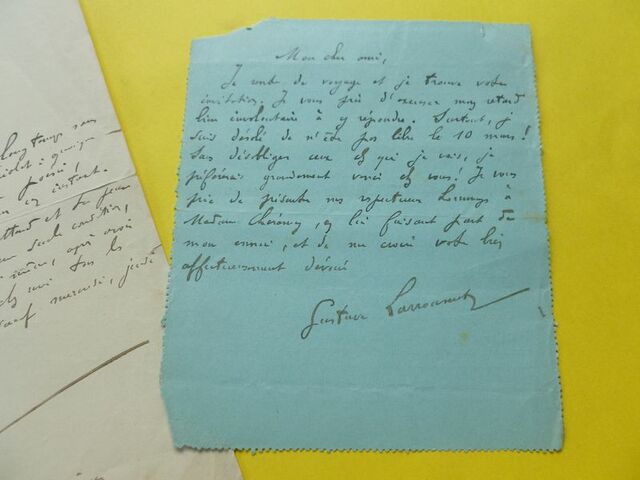 Mon cher ami,
Je rentre de voyage et je trouve votre
invitation. Je vous prie d'excuser mon retard
bien involontaire à y répondre. Surtout, je
suis désolé de n'être pas libre le 10 mars!
Sans désobliger ceux chez qui je vais, je
préférerais grandement venir chez vous! Je vous
prie de présenter mes respectueux hommages à
Madame en lui faisant part de
mon ennui, et de me croire votre bien
affectueusement dévoué
Gustave Larroumet
longtemps sans
poésie!
un instant.
et tu peux
condition,
après avoir
tous les
sauf mercredi, jeudi